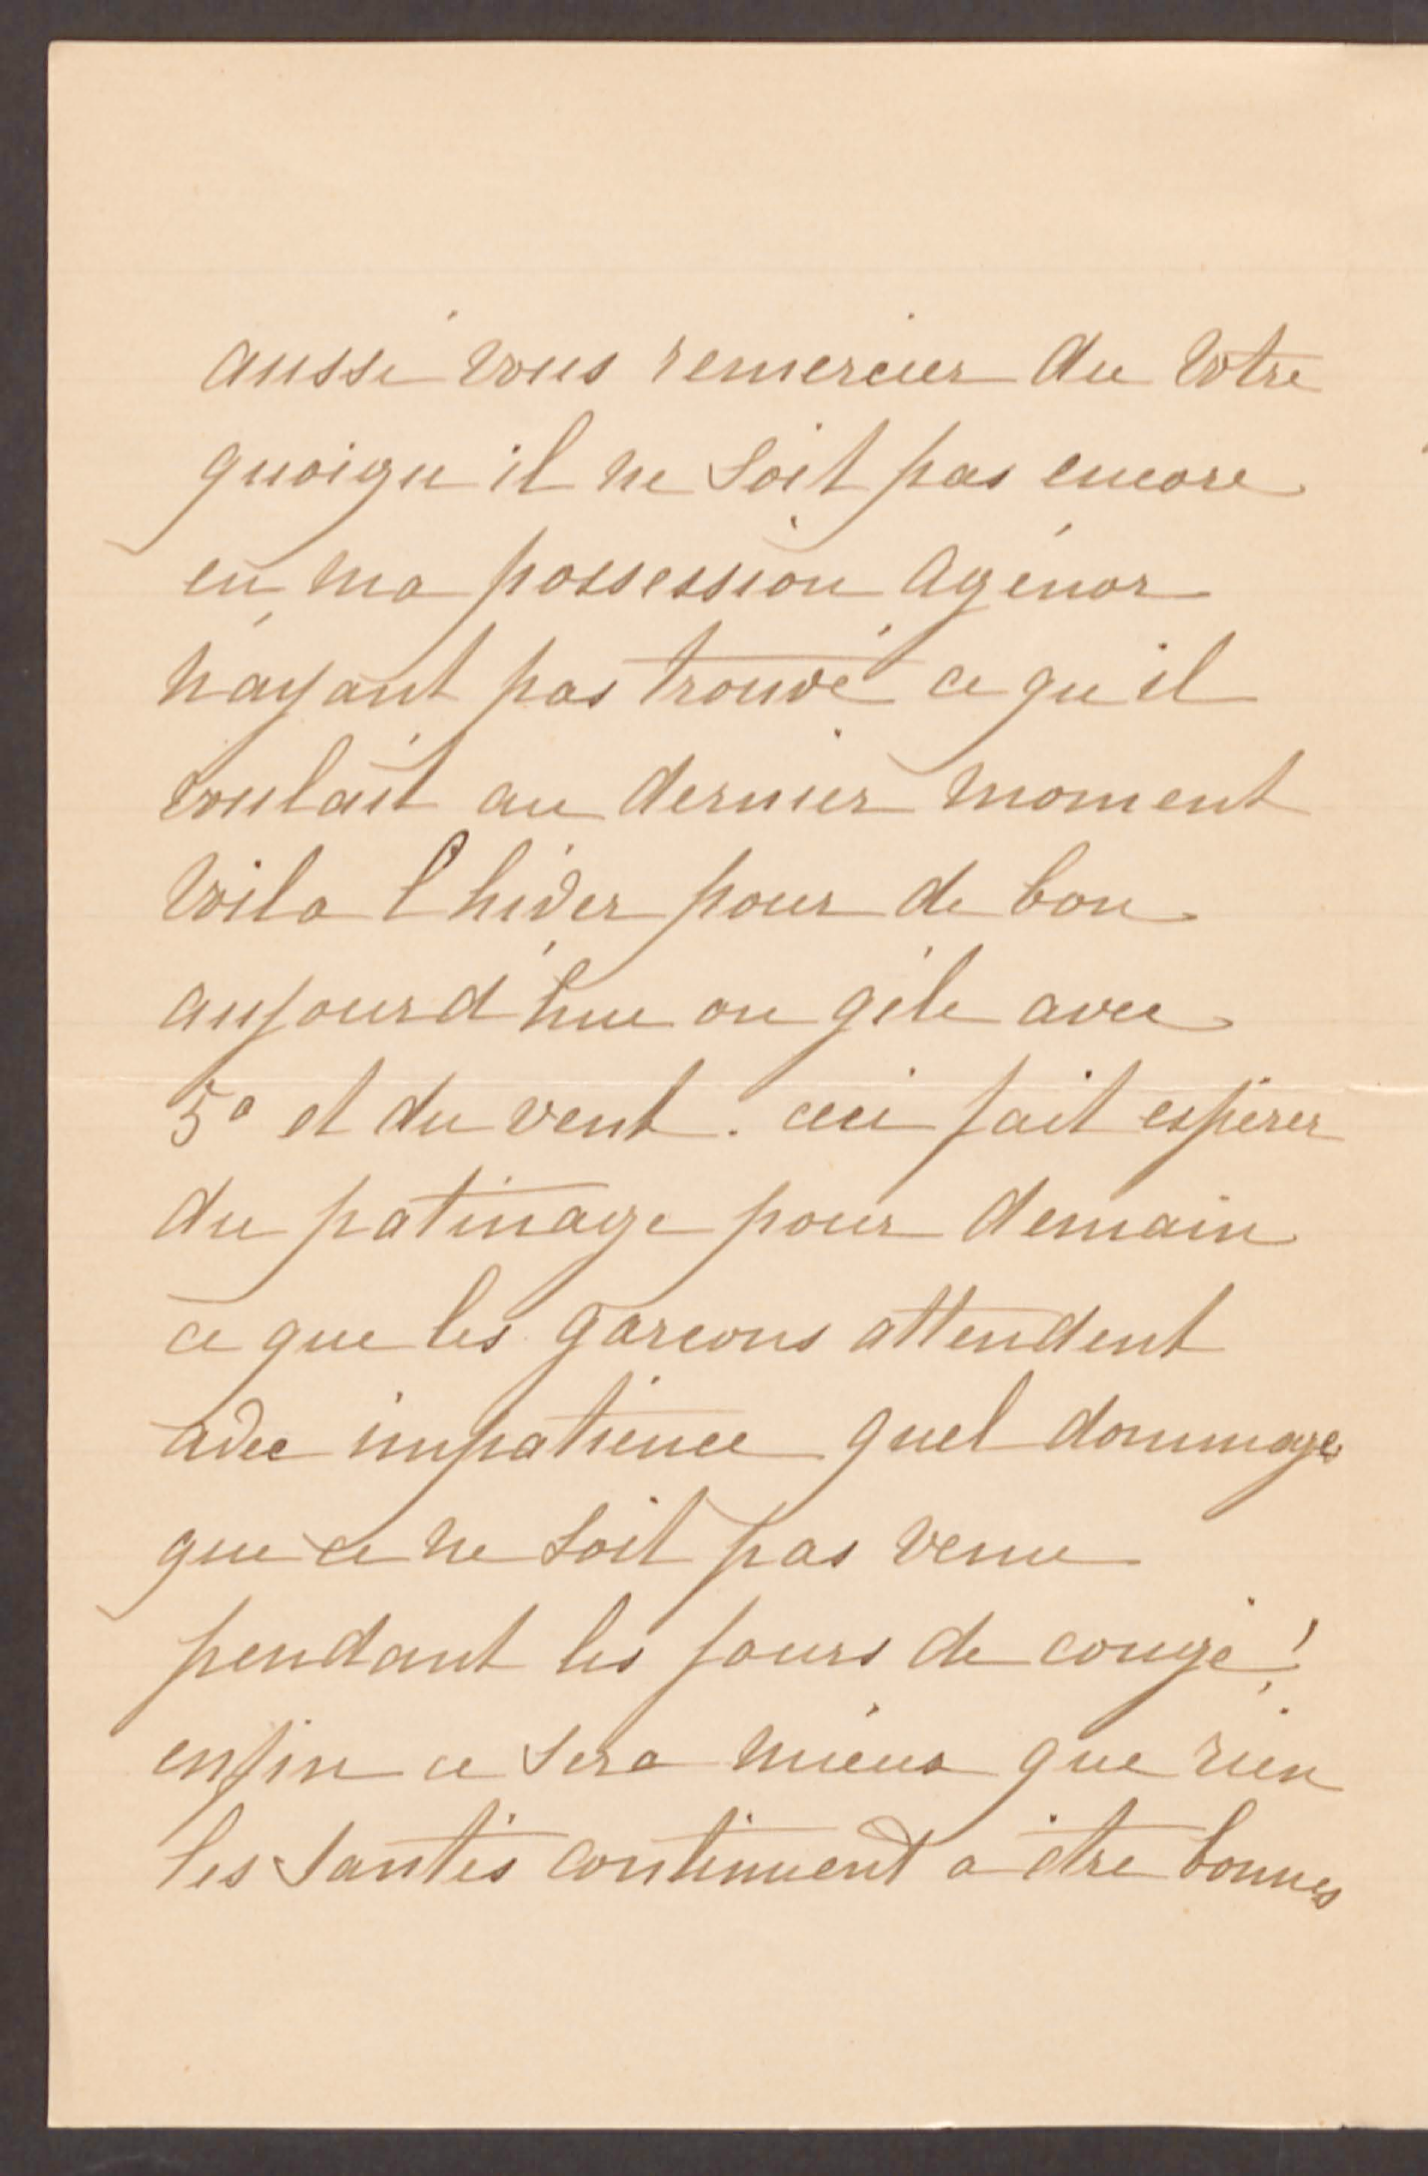 aussi vous remercier du votre
quoiqu il ne soit pas encore
en ma possession Agénor
n'ayant pas trouvé ce qu il
voulait au dernier moment
Voila l hiver pour de bon
aujourd'hui on gèle avec
5° et du vent. ceci fait espérer
du patinage pour demain
ce que les garcons attendent
avec impatience quel dommage
que ce ne soit pas venu
pendant les jours de congé!
enfin ce sera mieux que rien
les santés continuent a être bonnes